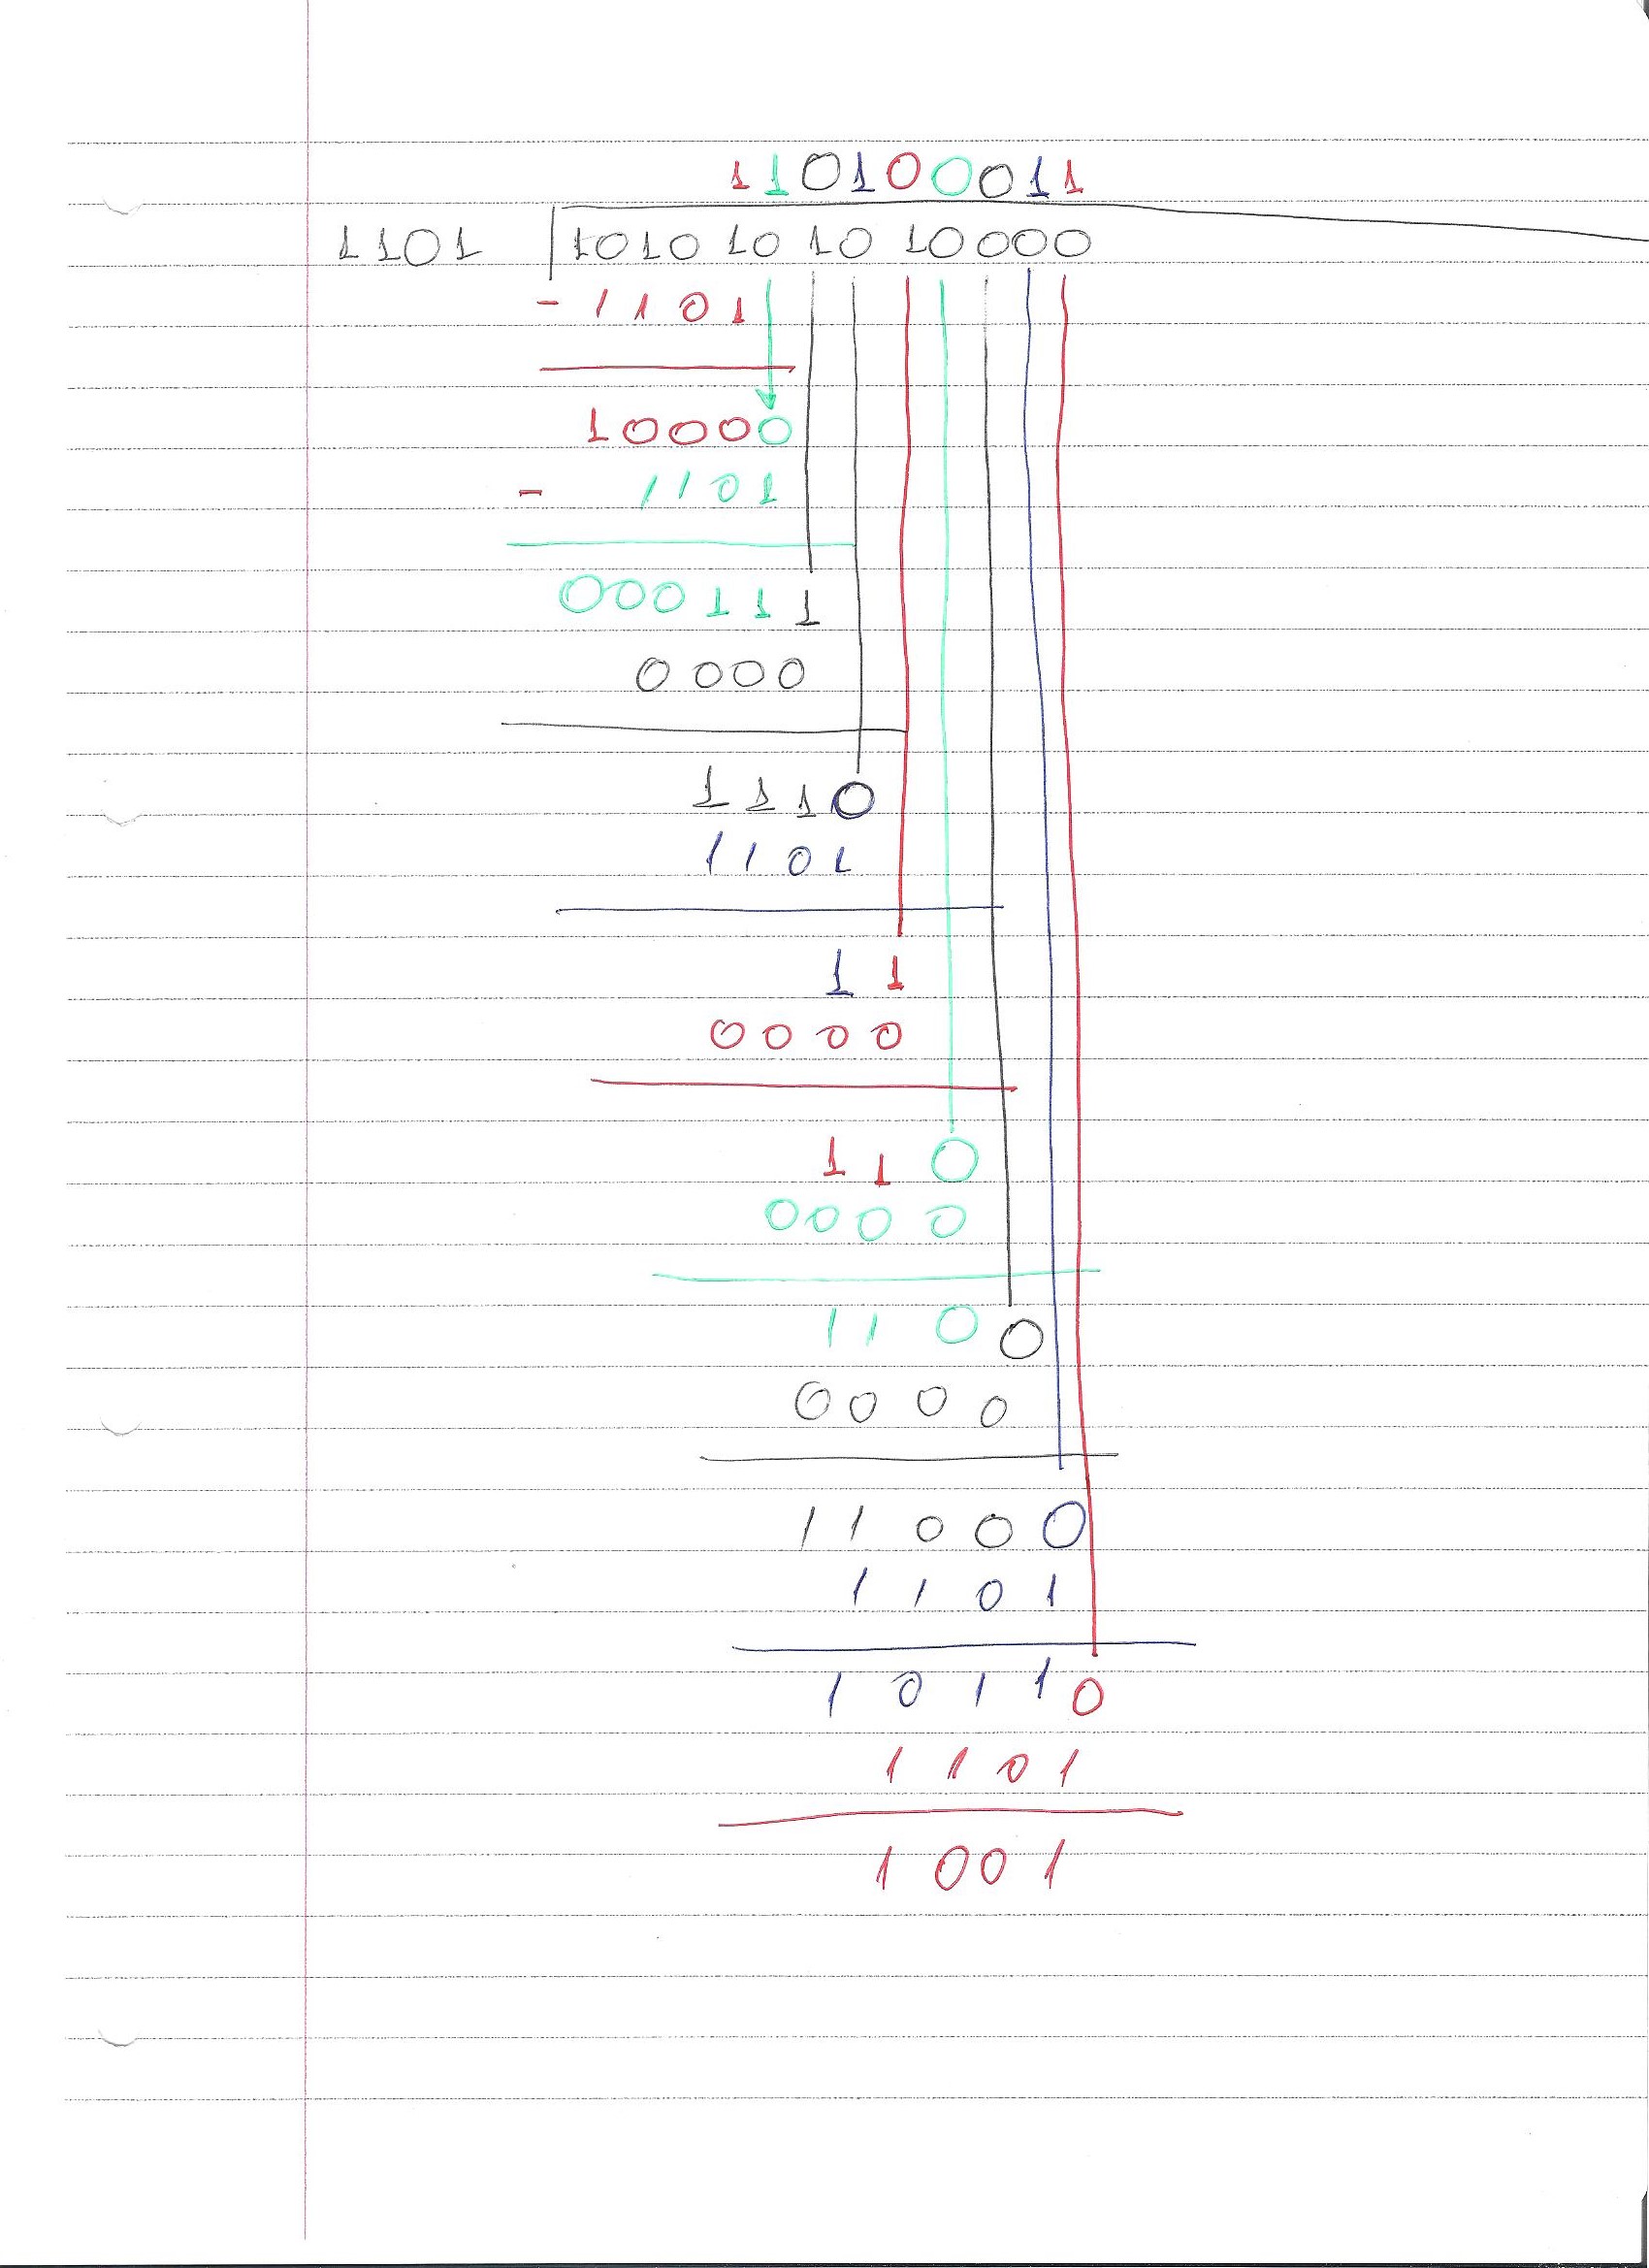 110100011
1101 1010 10 10 10000
- 1101
10000
- 1101
000111
0000
1110
1101
11
0000
110
0000
1100
0000
11000
1101
10110
1101
1001